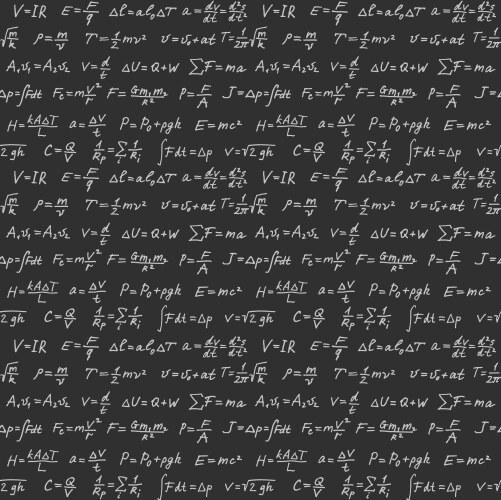 V=IR E=F/q Δl=αl₀ΔT a=dv/dt=d²s/dt² V=IR E=F/q Δl=αl₀ΔT a=dv/dt=d²s/dt²
√m/k ρ=m/v T=1/2mv² v=v₀+at T=1/2π√m/k ρ=m/v T=1/2mv² v=v₀+at T=1/2π
A₁v₁=A₂v₂ v=d/t ΔU=Q+W ∑F=ma A₁v₁=A₂v₂ v=d/t ΔU=Q+W ∑F=ma
Δp=∫Fdt Fc=mv²/r F=Gm₁m₂/R² P=F/A J=Δp=∫Fdt Fc=mv²/r F=Gm₁m₂/R² P=F/A J=Δ
H=kAΔT/L a=ΔV/t P=P₀+ρgh E=mc² H=kAΔT/L a=ΔV/t P=P₀+ρgh E=mc²
2gh C=Q/V 1/Rp=∑1/Ri ∫Fdt=Δp v=√2gh C=Q/V 1/Rp=∑1/Ri ∫Fdt=Δp v=√
V=IR E=F/q Δl=αl₀ΔT a=dv/dt=d²s/dt² V=IR E=F/q Δl=αl₀ΔT a=dv/dt=d²s/dt²
√m/k ρ=m/v T=1/2mv² v=v₀+at T=1/2π√m/k ρ=m/v T=1/2mv² v=v₀+at T=1/2π
A₁v₁=A₂v₂ v=d/t ΔU=Q+W ∑F=ma A₁v₁=A₂v₂ v=d/t ΔU=Q+W ∑F=ma
Δp=∫Fdt Fc=mv²/r F=Gm₁m₂/R² P=F/A J=Δp=∫Fdt Fc=mv²/r F=Gm₁m₂/R² P=F/A J=Δ
H=kAΔT/L a=ΔV/t P=P₀+ρgh E=mc² H=kAΔT/L a=ΔV/t P=P₀+ρgh E=mc²
2gh C=Q/V 1/Rp=∑1/Ri ∫Fdt=Δp v=√2gh C=Q/V 1/Rp=∑1/Ri ∫Fdt=Δp v=√
V=IR E=F/q Δl=αl₀ΔT a=dv/dt=d²s/dt² V=IR E=F/q Δl=αl₀ΔT a=dv/dt=d²s/dt²
√m/k ρ=m/v T=1/2mv² v=v₀+at T=1/2π√m/k ρ=m/v T=1/2mv² v=v₀+at T=1/2π
A₁v₁=A₂v₂ v=d/t ΔU=Q+W ∑F=ma A₁v₁=A₂v₂ v=d/t ΔU=Q+W ∑F=ma
Δp=∫Fdt Fc=mv²/r F=Gm₁m₂/R² P=F/A J=Δp=∫Fdt Fc=mv²/r F=Gm₁m₂/R² P=F/A J=Δ
H=kAΔT/L a=ΔV/t P=P₀+ρgh E=mc² H=kAΔT/L a=ΔV/t P=P₀+ρgh E=mc²
2gh C=Q/V 1/Rp=∑1/Ri ∫Fdt=Δp v=√2gh C=Q/V 1/Rp=∑1/Ri ∫Fdt=Δp v=√